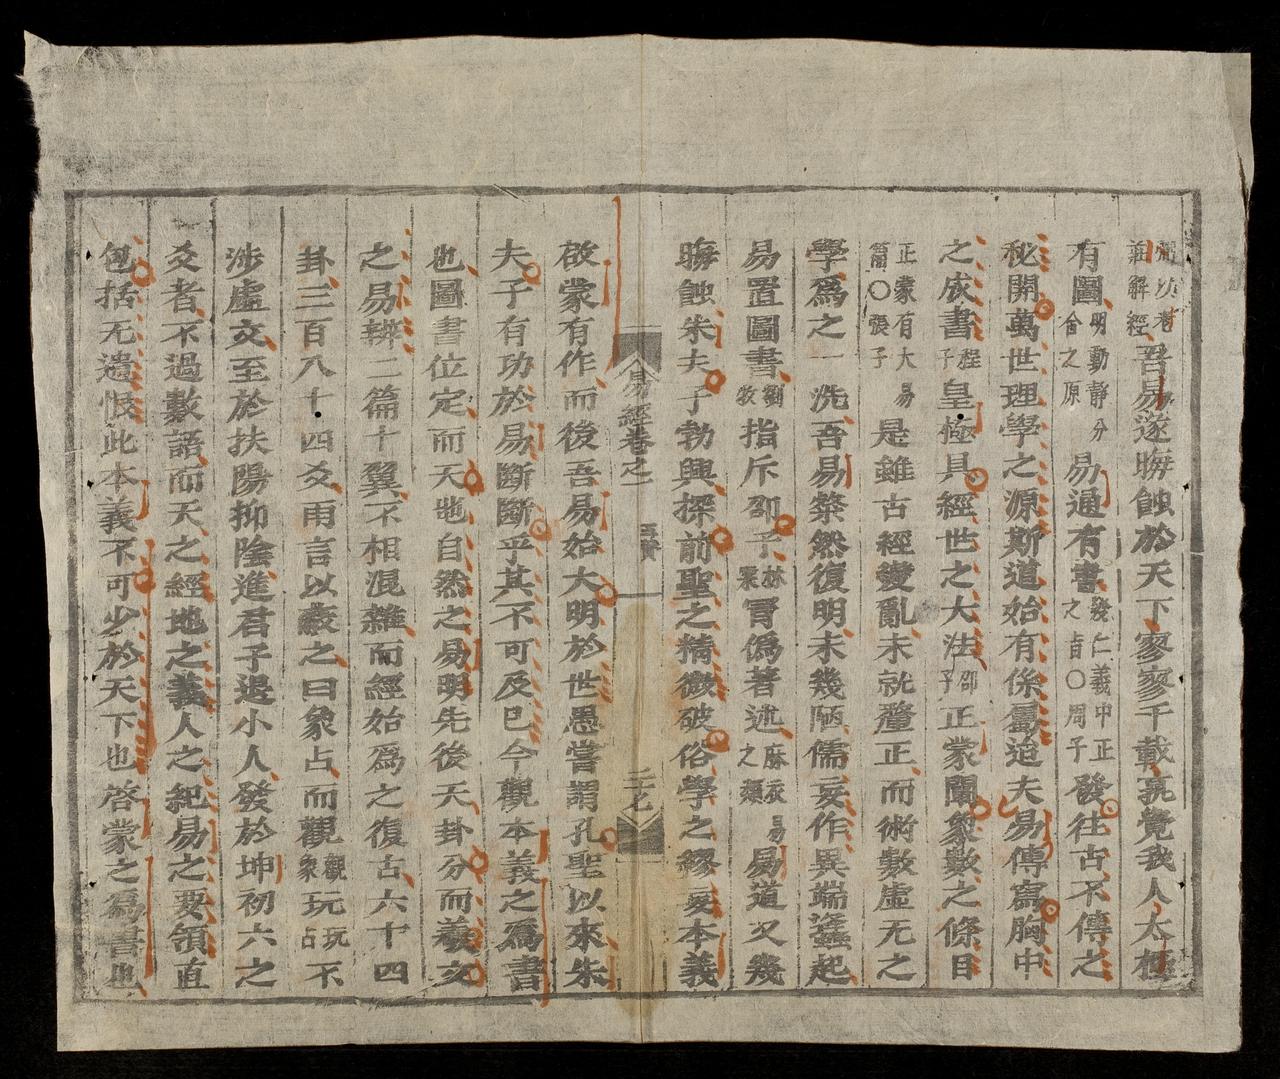 莊解經吾易遂晦蝕於天下寥寥千載孰覺我人太極
有圖明動靜分會之原易通有書發仁義中正之旨〇周子發往古不傳之
秘開萬世理學之源斯道始有係屬迨夫易傳寫胸中
之成書程子皇極具經世之大法邵子正蒙闡象數之條目
正蒙有大易篇〇張子是雖古經變亂未就釐正而術數虛无之
學爲之一洗吾易粲然復明未幾陋儒妄作異端蠭起
易置圖書劉牧指斥邵子林栗冐僞著述麻衣易之類易道又幾
晦蝕朱夫子勃興探前聖之精微破俗學之繆妄本義
易經卷之一
二七
啟蒙有作而後吾易始大明於世愚嘗謂孔聖以來朱
夫子有功於易斷斷乎其不可及已今觀本義之爲書
也圖書位定而天地自然之易明先後天卦分而羲文
之易辨二篇十翼不相混雜而經始爲之復古六十四
卦三百八十四爻兩言以蔽之曰象占而觀觀象玩玩占不
涉虛文至於扶陽抑陰進君子退小人發於坤初六之
爻者不過數語而天之經地之義人之紀易之要領直
包括无遺恨此本義不可少於天下也啓蒙之爲書也